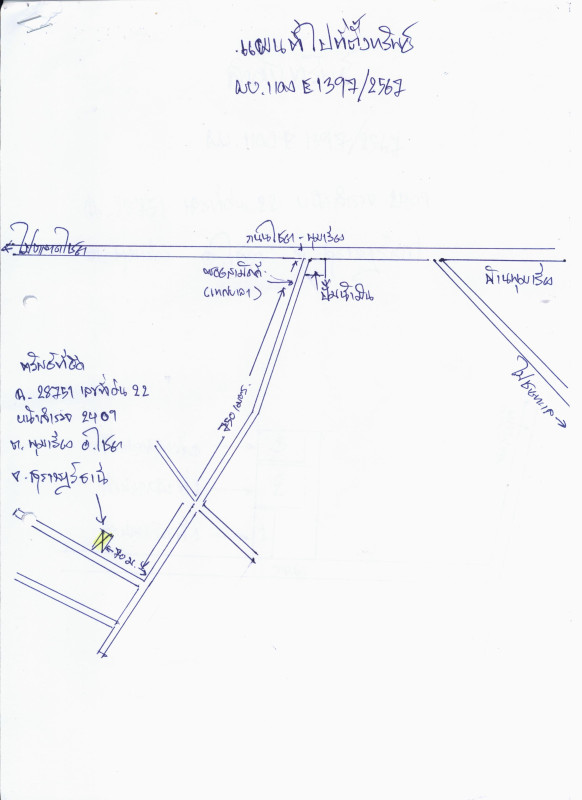 แผนที่ไปที่ตั้งทรัพย์
ผบ.แดง ธ 1397/2567
ไปตลาดไชยา
ถนนไชยา - พุมเรียง
ซอยสามัคคี
(เทศบาล)
ปั๊มน้ำมัน
บ้านพุมเรียง
ไปชายทะเล
350 เมตร
ทรัพย์ที่ยึด
ฉ. 28751 เลขที่ดิน 22
หน้าสำรวจ 2409
ต. พุมเรียง อ.ไชยา
จ.สุราษฎร์ธานี
70 ม.